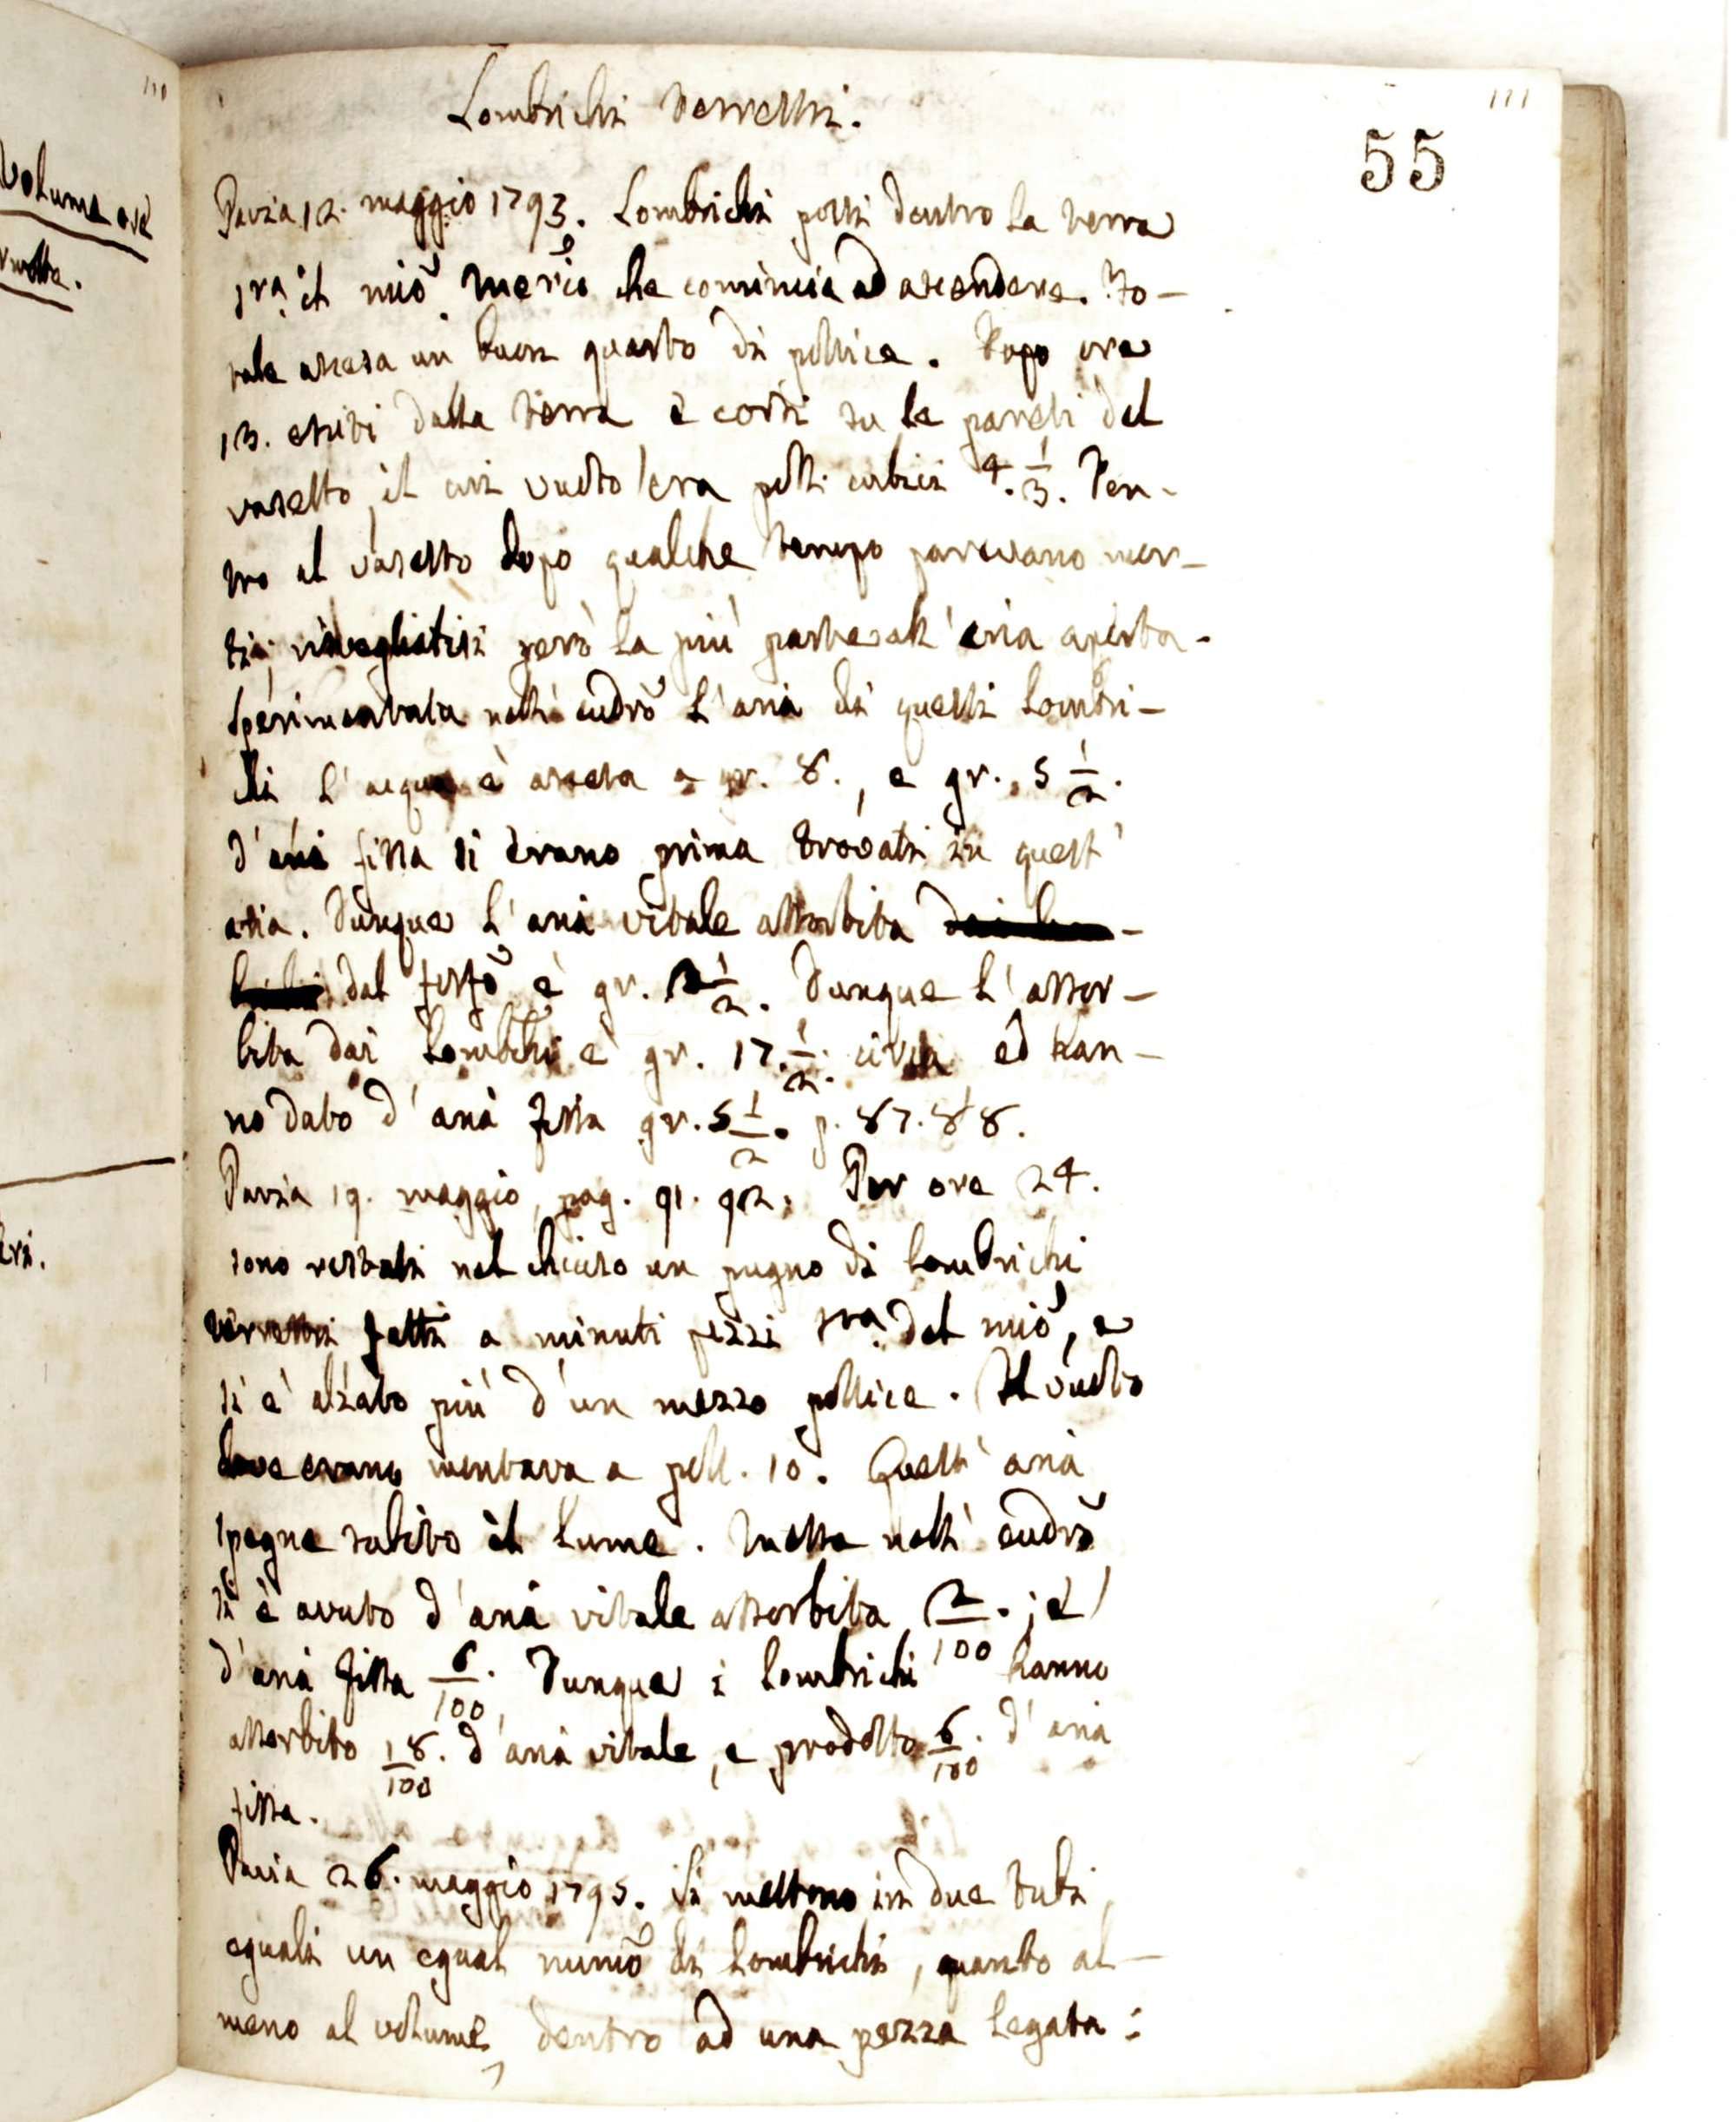 110
111
55
Volume
Lombrichi terrestri.
Pavia 12. maggio 1793. Lombrichi posti dentro la terra
il mio che comincia ad ascendere. To-
tale ascesa un buon quarto di pollice. Dopo ore
13. esciti dalla terra e corsi su le pareti del
vasetto, il cui vuoto era poll. cubici 4. 1/3. Den-
tro al vasetto dopo qualche tempo parevano mor-
ti; risvegliatisi però la più parte all'aria aperta.
Sperimentata nell' eudrõ l'aria di questi lombri-
chi l'acqua è ascesa a gr. 8., e gr. 5 1/2.
d'aria fissa si erano prima trovati in quest'
aria. Dunque l'aria vitale assorbita
dal fosfõ è gr. 1/2. Dunque l'assor-
bita dai lombrichi è gr. 17. 1/2. circa ed han-
no dato d'aria fissa gr. 5 1/2. p. 87. 88.
Pavia 19. maggio, pag. 91. 92. Per ore 24.
sono restati nel chiuso un pugno di lombrichi
terrestri fatti a minuti pezzi del mio, e
si è alzato più d'un mezzo pollice. Il vuoto
dove erano montava a poll. 10. Quest' aria
spegne subito il lume. Messa nell' eudrõ
si è avuto d'aria vitale assorbita 2/100.; e
d'aria fissa 6/100. Dunque i lombrichi hanno
assorbito 18/100. d'aria vitale, e prodotto 6/100. d'aria
fissa.
Pavia 26. maggio 1795. Si mettono in due tubi
eguali un egual numõ di lombrichi, quanto al-
meno al volume, dentro ad una pezza legata: